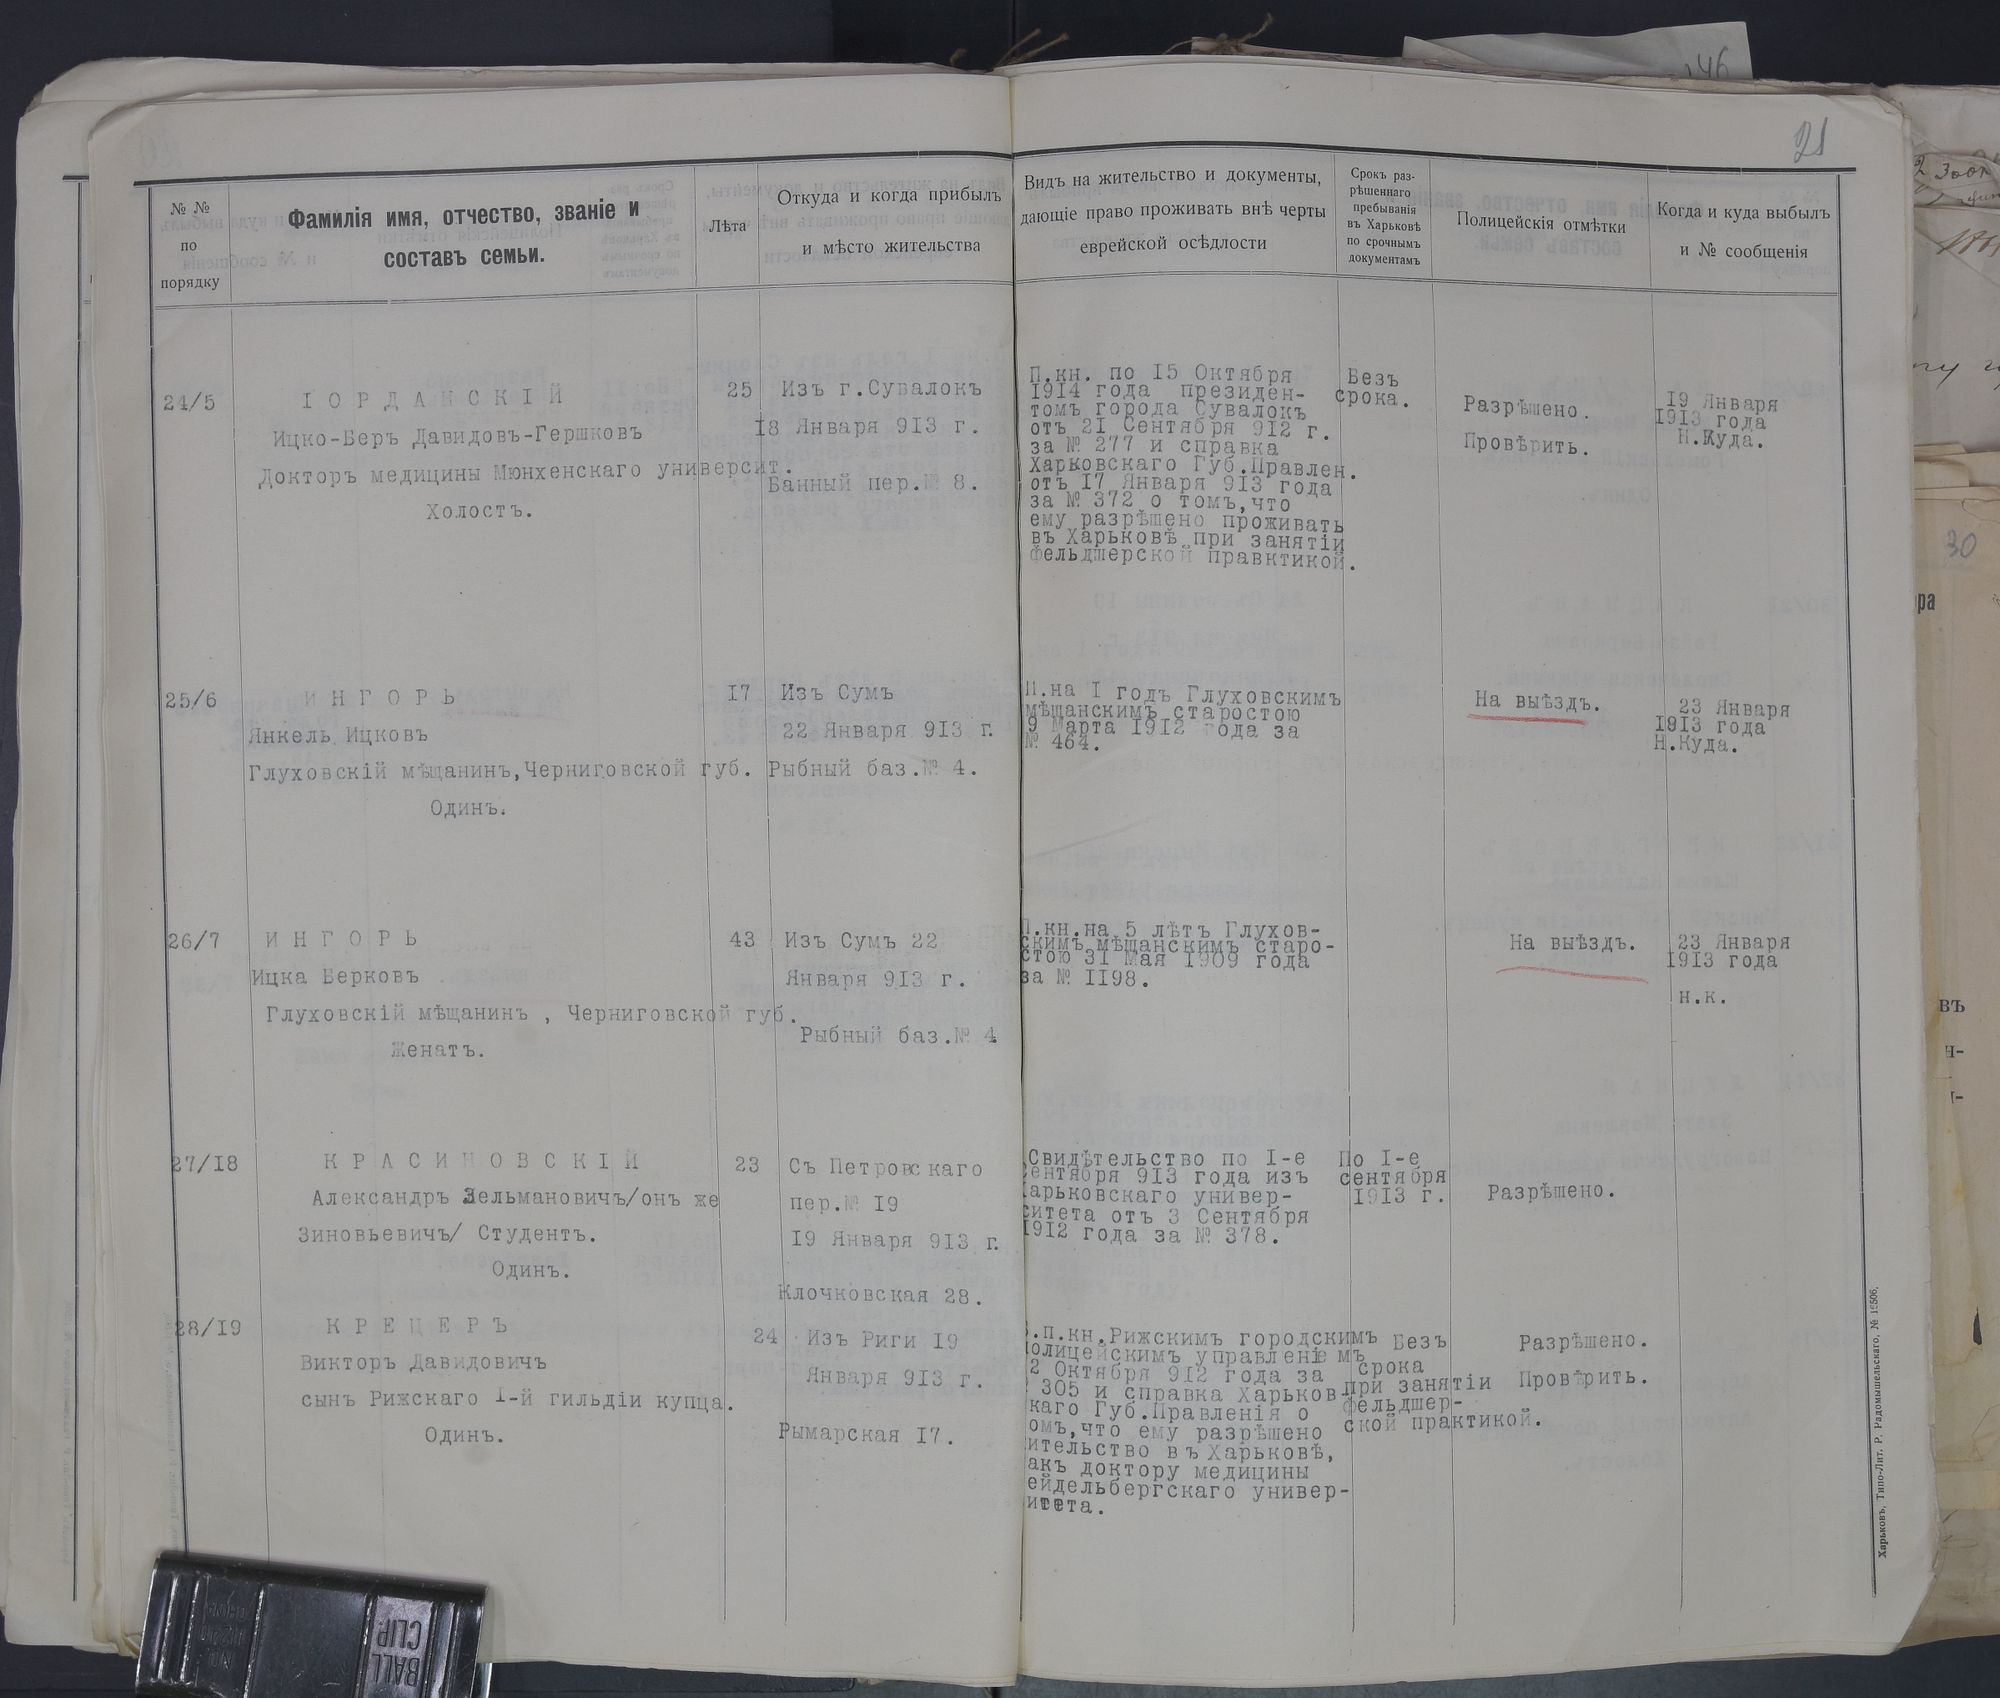 21
№ №
по
порядку
Фамилія имя, отчество, званіе и
составъ семьи.
Лѣта
Откуда и когда прибылъ
и мѣсто жительства
Видъ на жительство и документы,
дающіе право проживать внѣ черты
еврейской осѣдлости
Срокъ раз-
рѣшеннаго
пребыванія
въ Харьковѣ
по срочнымъ
документамъ
Полицейскія отмѣтки
Когда и куда выбылъ
и № сообщенія
24/5
ІОРДАНСКІЙ
Ицко-Беръ Давидовъ-Гершковъ
Докторъ медицины Мюнхенскаго университ.
Холостъ.
25
Изъ г.Сувалокъ
І8 Января 9І3 г.
Банный пер.№ 8.
П.кн. по І5 Октября
І9І4 года президен-
томъ города Сувалокъ
отъ 2І Сентября 9І2 г.
за № 277 и справка
Харковскаго Губ.Правлен.
отъ І7 Января 9І3 года
за № 372 о томъ,что
ему разрѣшено проживать
въ Харьковѣ при занятіи
фельдшерской правктикой.
Безъ
срока.
Разрѣшено.
Провѣрить.
І9 Января
І9І3 года
Н.Куда.
25/6
ИНГОРЬ
Янкель Ицковъ
Глуховскій мѣщанинъ,Черниговской губ.
Одинъ.
І7
Изъ Сумъ
22 Января 9І3 г.
Рыбный баз.№ 4.
П.на І годъ Глуховскимъ
мѣщанскимъ старостою
9 Марта І9І2 года за
№ 464.
На выѣздъ.
23 Января
І9І3 года
Н.Куда.
26/7
ИНГОРЬ
Ицка Берковъ
Глуховскій мѣщанинъ , Черниговской губ.
Женатъ.
43
Изъ Сумъ 22
Января 9І3 г.
Рыбный баз.№ 4
П.кн.на 5 лѣтъ Глухов-
скимъ мѣщанскимъ старо-
стою 3І Мая І909 года
за № ІІ98.
На выѣздъ.
23 Января
І9І3 года
н.к.
27/І8
КРАСИНОВСКІЙ
Александръ Зельмановичъ/онъ же
Зиновьевичъ/ Студентъ.
Одинъ.
23
Съ Петровскаго
пер.№ І9
І9 Января 9І3 г.
Клочковская 28.
Свидѣтельство по І-е
Сентября 9І3 года изъ
Харьковскаго универ-
ситета отъ 3 Сентября
І9І2 года за № 378.
По І-е
сентября
І9І3 г.
Разрѣшено.
28/І9
КРЕЦЕРЪ
Викторъ Давидовичъ
сынъ Рижскаго І-й гильдіи купца.
Одинъ.
24
Изъ Риги І9
Января 9І3 г.
Рымарская І7.
.п.кн.Рижскимъ городскимъ
олицейскимъ управленіемъ
2 Октября 9І2 года за
305 и справка Харьков-
каго Губ.Правленія о
омъ,что ему разрѣшено
ительство въ Харьковѣ,
акъ доктору медицины
ейдельбергскаго универ-
итета.
Безъ
срока
при занятіи
фельдшер-
ской практикой.
Разрѣшено.
Провѣрить.
Харьковъ, Типо-Лит. Р. Радомышельскаго,
146
30
ра
въ
BALL
CLIP